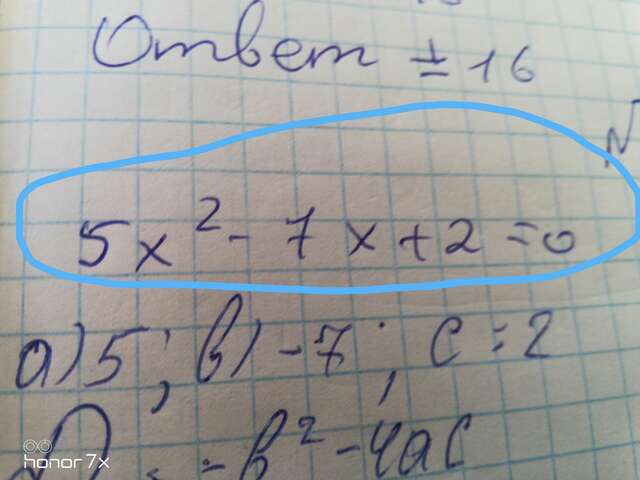 Ответ ± 16
5x² - 7x + 2 = 0
а) 5; в) - 7; c = 2
= в² - 4ac
honor 7x